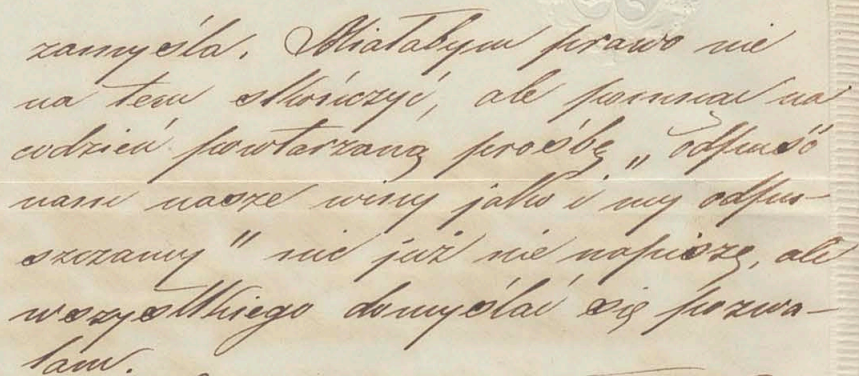 zamyśla. Miałabym prawo nie
na tem skończyć, ale pomna na
codzień powtarzaną prośbę „odpuść
nam nasze winy jako i my odpu-
szczamy" nic już nie napiszę, ale
wszystkiego domyślać się pozwa-
lam.